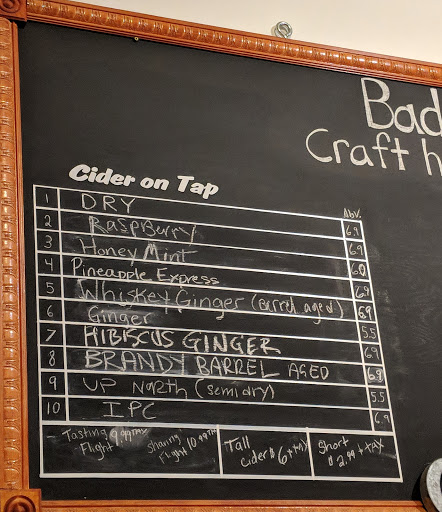 Bad
Craft h
Cider on Tap
Abv.
1 DRY 6.9
2 RaSpBerry 6.9
3 Honey Mint 6.0
4 Pineapple Express 6.9
5 Whiskey Ginger (barrel aged) 6.9
6 Ginger 5.5
7 HIBISCUS GINGER 6.9
8 BRANDY BARREL AGED 6.9
9 UP NORTH (semi dry) 5.5
10 IPC 6.9
Tasting Flight 9.99 + TAX
Sharing Flight 10.99
Tall Cider $6 + TAX
Short $2.99 + TAX